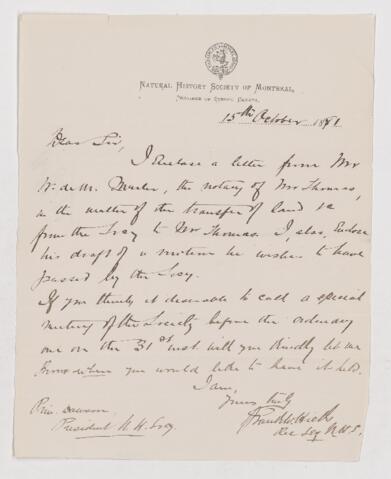 NATURAL HISTORY SOCIETY OF MONTREAL,
15th October 1881
Dear Sir,
I Enclose a letter from Mr
W. de M. Marler, the notary of Mr Thomas,
in the matter of the transfer of land &c
from the Socy to Mr Thomas. I, also, Enclose
his draft of a motion he wishes to have
passed by the Socy.
If you think it desirable to call a special
meeting of the Society before the ordinary
one on the 31st inst. will you kindly let me
know when you would like to have it held.
I am,
Yours truly
Rec Secy N.H.S.
Prin. Dawson
President N. H. Socy.